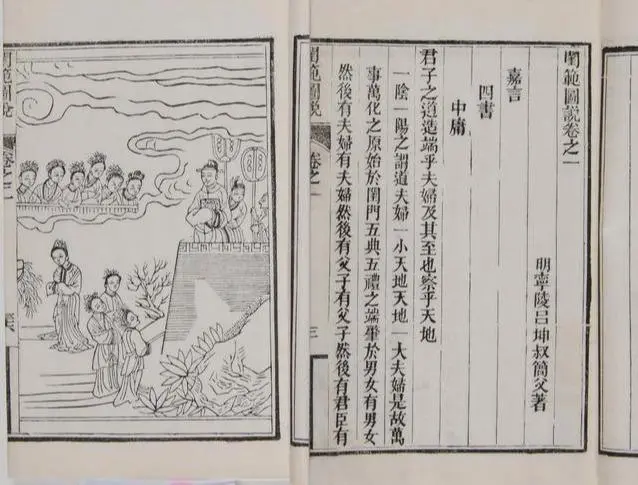 閨範圖說卷之一
明寧陵呂坤叔簡父著
嘉言
四書
中庸
君子之道造端乎夫婦及其至也察乎天地
一陰一陽之謂道夫婦一小天地天地一大夫婦是故萬
事萬化之原始於閨門五典五禮之端肇於男女有男女
然後有夫婦有夫婦然後有父子有父子然後有君臣有
閨範圖說
卷之一
三
閨範圖說
卷之二